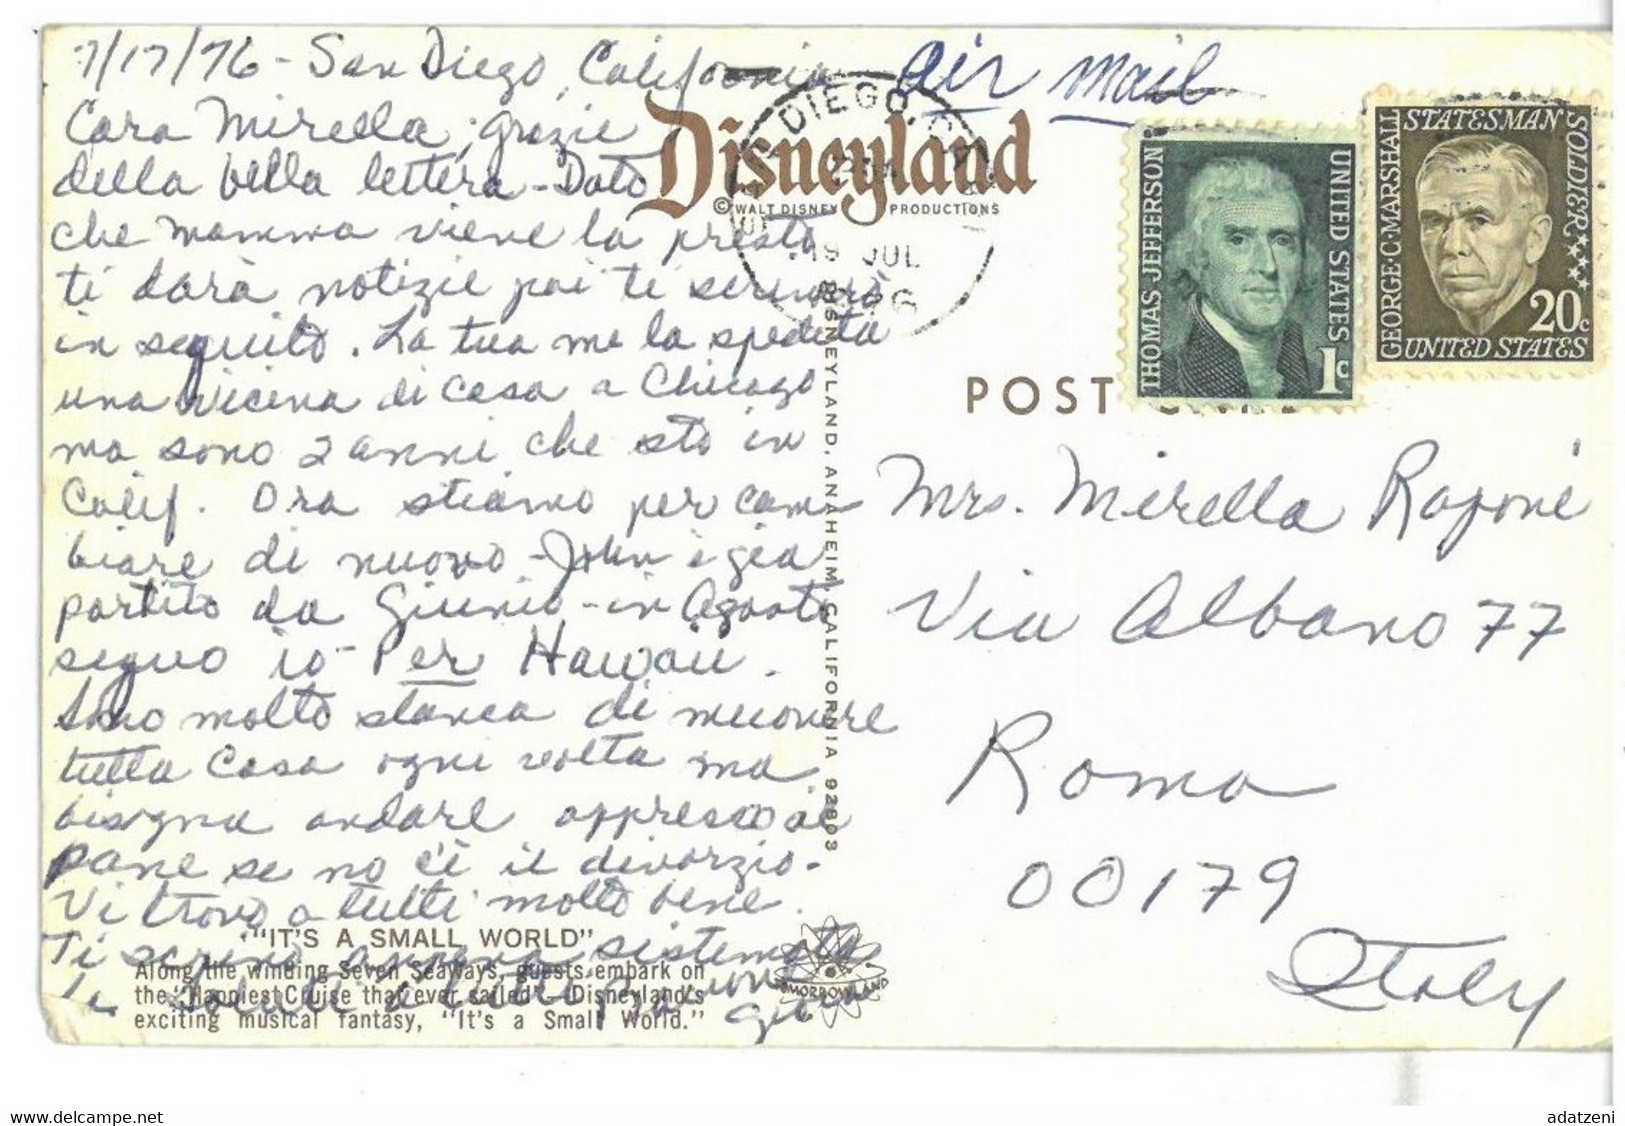 7/17/76 - San Diego, California
Air Mail
Cara Mirella, grazie
della bella lettera - Dato
che mamma viene la presto
ti darà notizie poi ti scriverò
in seguito. La tua me la spedita
una vicina di casa a Chicago
ma sono 2 anni che sto in
Calif. Ora stiamo per cam
biare di nuovo - John è gia
partito da Giunio - in Agosto
seguo io - Per Hawaii.
Sono molto stanca di muovere
tutta casa ogni volta ma
bisogna andare appresso al
pane se no c'è il divorzio.
Vi trovo a tutti molto bene.
Ti scrivo appena sistemata
saluti a tutti
Disneyland
© WALT DISNEY PRODUCTIONS
DIEGO, CA
19 JUL
DISNEYLAND, ANAHEIM, CALIFORNIA 92803
THOMAS JEFFERSON
UNITED STATES
1c
STATESMAN
SOLDIER
GEORGE·C·MARSHALL
20c
UNITED STATES
POST CARD
Mrs. Mirella Raponi
Via Albano 77
Roma
00179
Italy
"IT'S A SMALL WORLD"
Along the winding Seven Seaways, guests embark on
the "Happiest Cruise that ever sailed" — Disneyland's
exciting musical fantasy, "It's a Small World."
TOMORROWLAND
www.delcampe.net
adatzeni